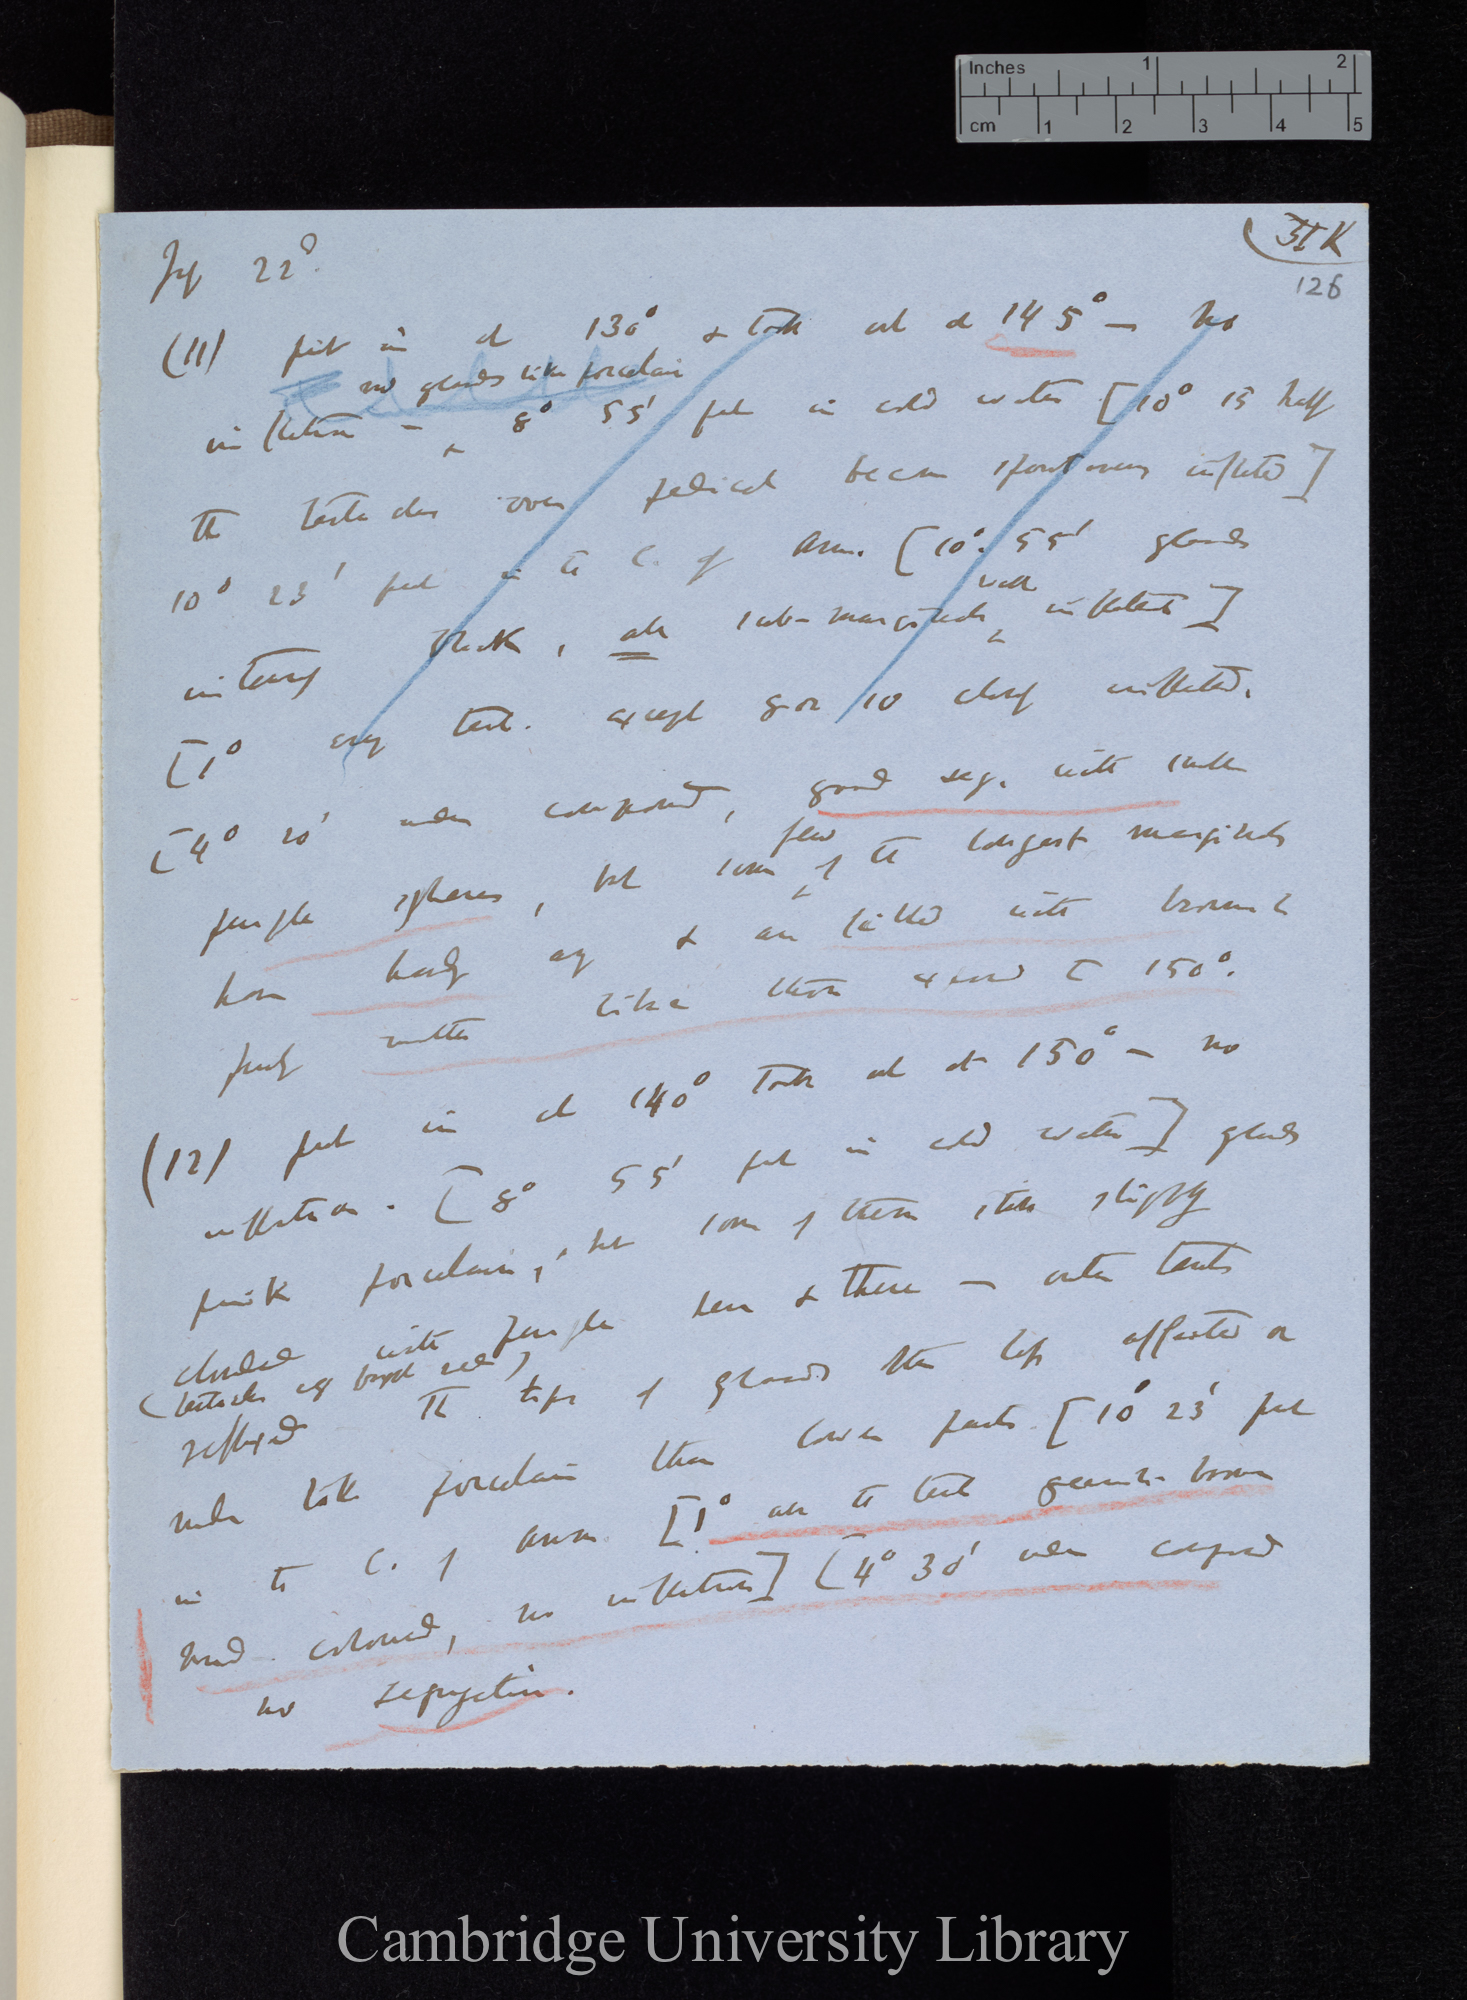 Inches 1 2
cm 1 2 3 4 5
31 K
126
July 22°.
(11) put in at 130° & took out at 145° — no
no glands like porcelain
inflection — 8° 55' put in cold water [10° 15 half
the tentacles over pedicel became spontaneously inflected]
10° 23' put in to C. of Amm. [10° 55' glands
intensely black, all sub-marginals well inflected]
[1° every tent. except 8 or 10 closely inflected.
[4° 20' under compound, good seg. with
purple spheres, but some few of the longest marginals
have hardly any & are filled with brownish
pulpy matter like those exposed to 150°.
(12) put in at 140° took out at 150° — no
inflection. [8° 55' put in cold water] glands
pink porcelain, but some of them still slightly
clouded with purple here & there — outer tents
(tentacles red)
reflexed The tips of glands the less affected or
under like porcelain than lower parts [10° 23' put
in to C. of Amm [1° all the tent greenish-brown
mud coloured, no inflection] [4° 30' under compound
no segregation.
Cambridge University Library